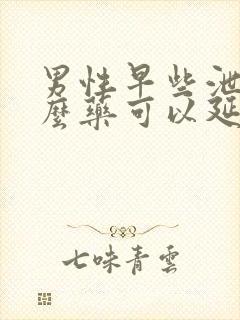 男性早些泄
麼藥可以延
七味青雲